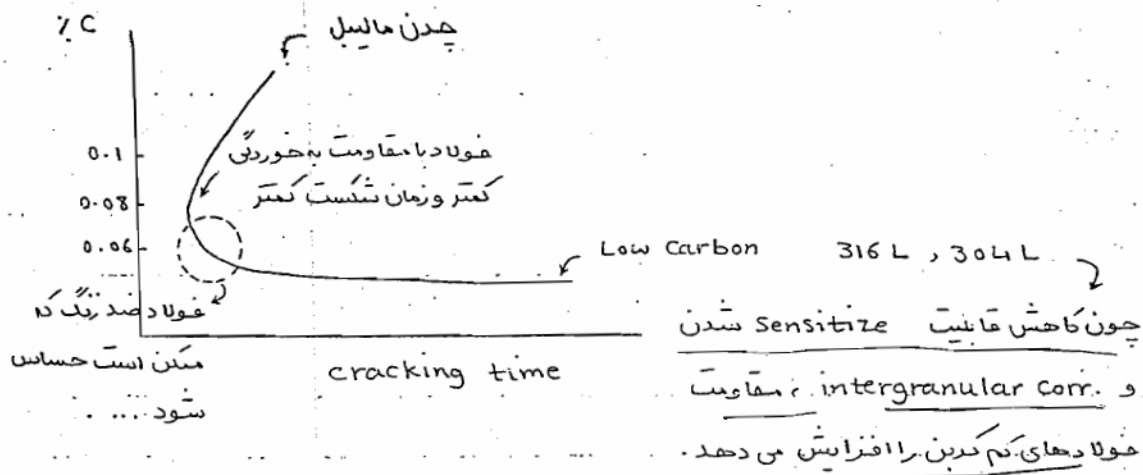 % C
چدن مالیبل
0.1
فولاد با مقاومت به خوردگی
کمتر و زمان شکست کمتر
0.08
0.06
Low Carbon 316 L , 304 L
فولاد ضد زنگ که
ممکن است حساس
شود ....
cracking time
چون کاهش قابلیت Sensitize شدن
و intergranular corr. ، مقاومت
فولادهای کم کربن را افزایش می دهد.